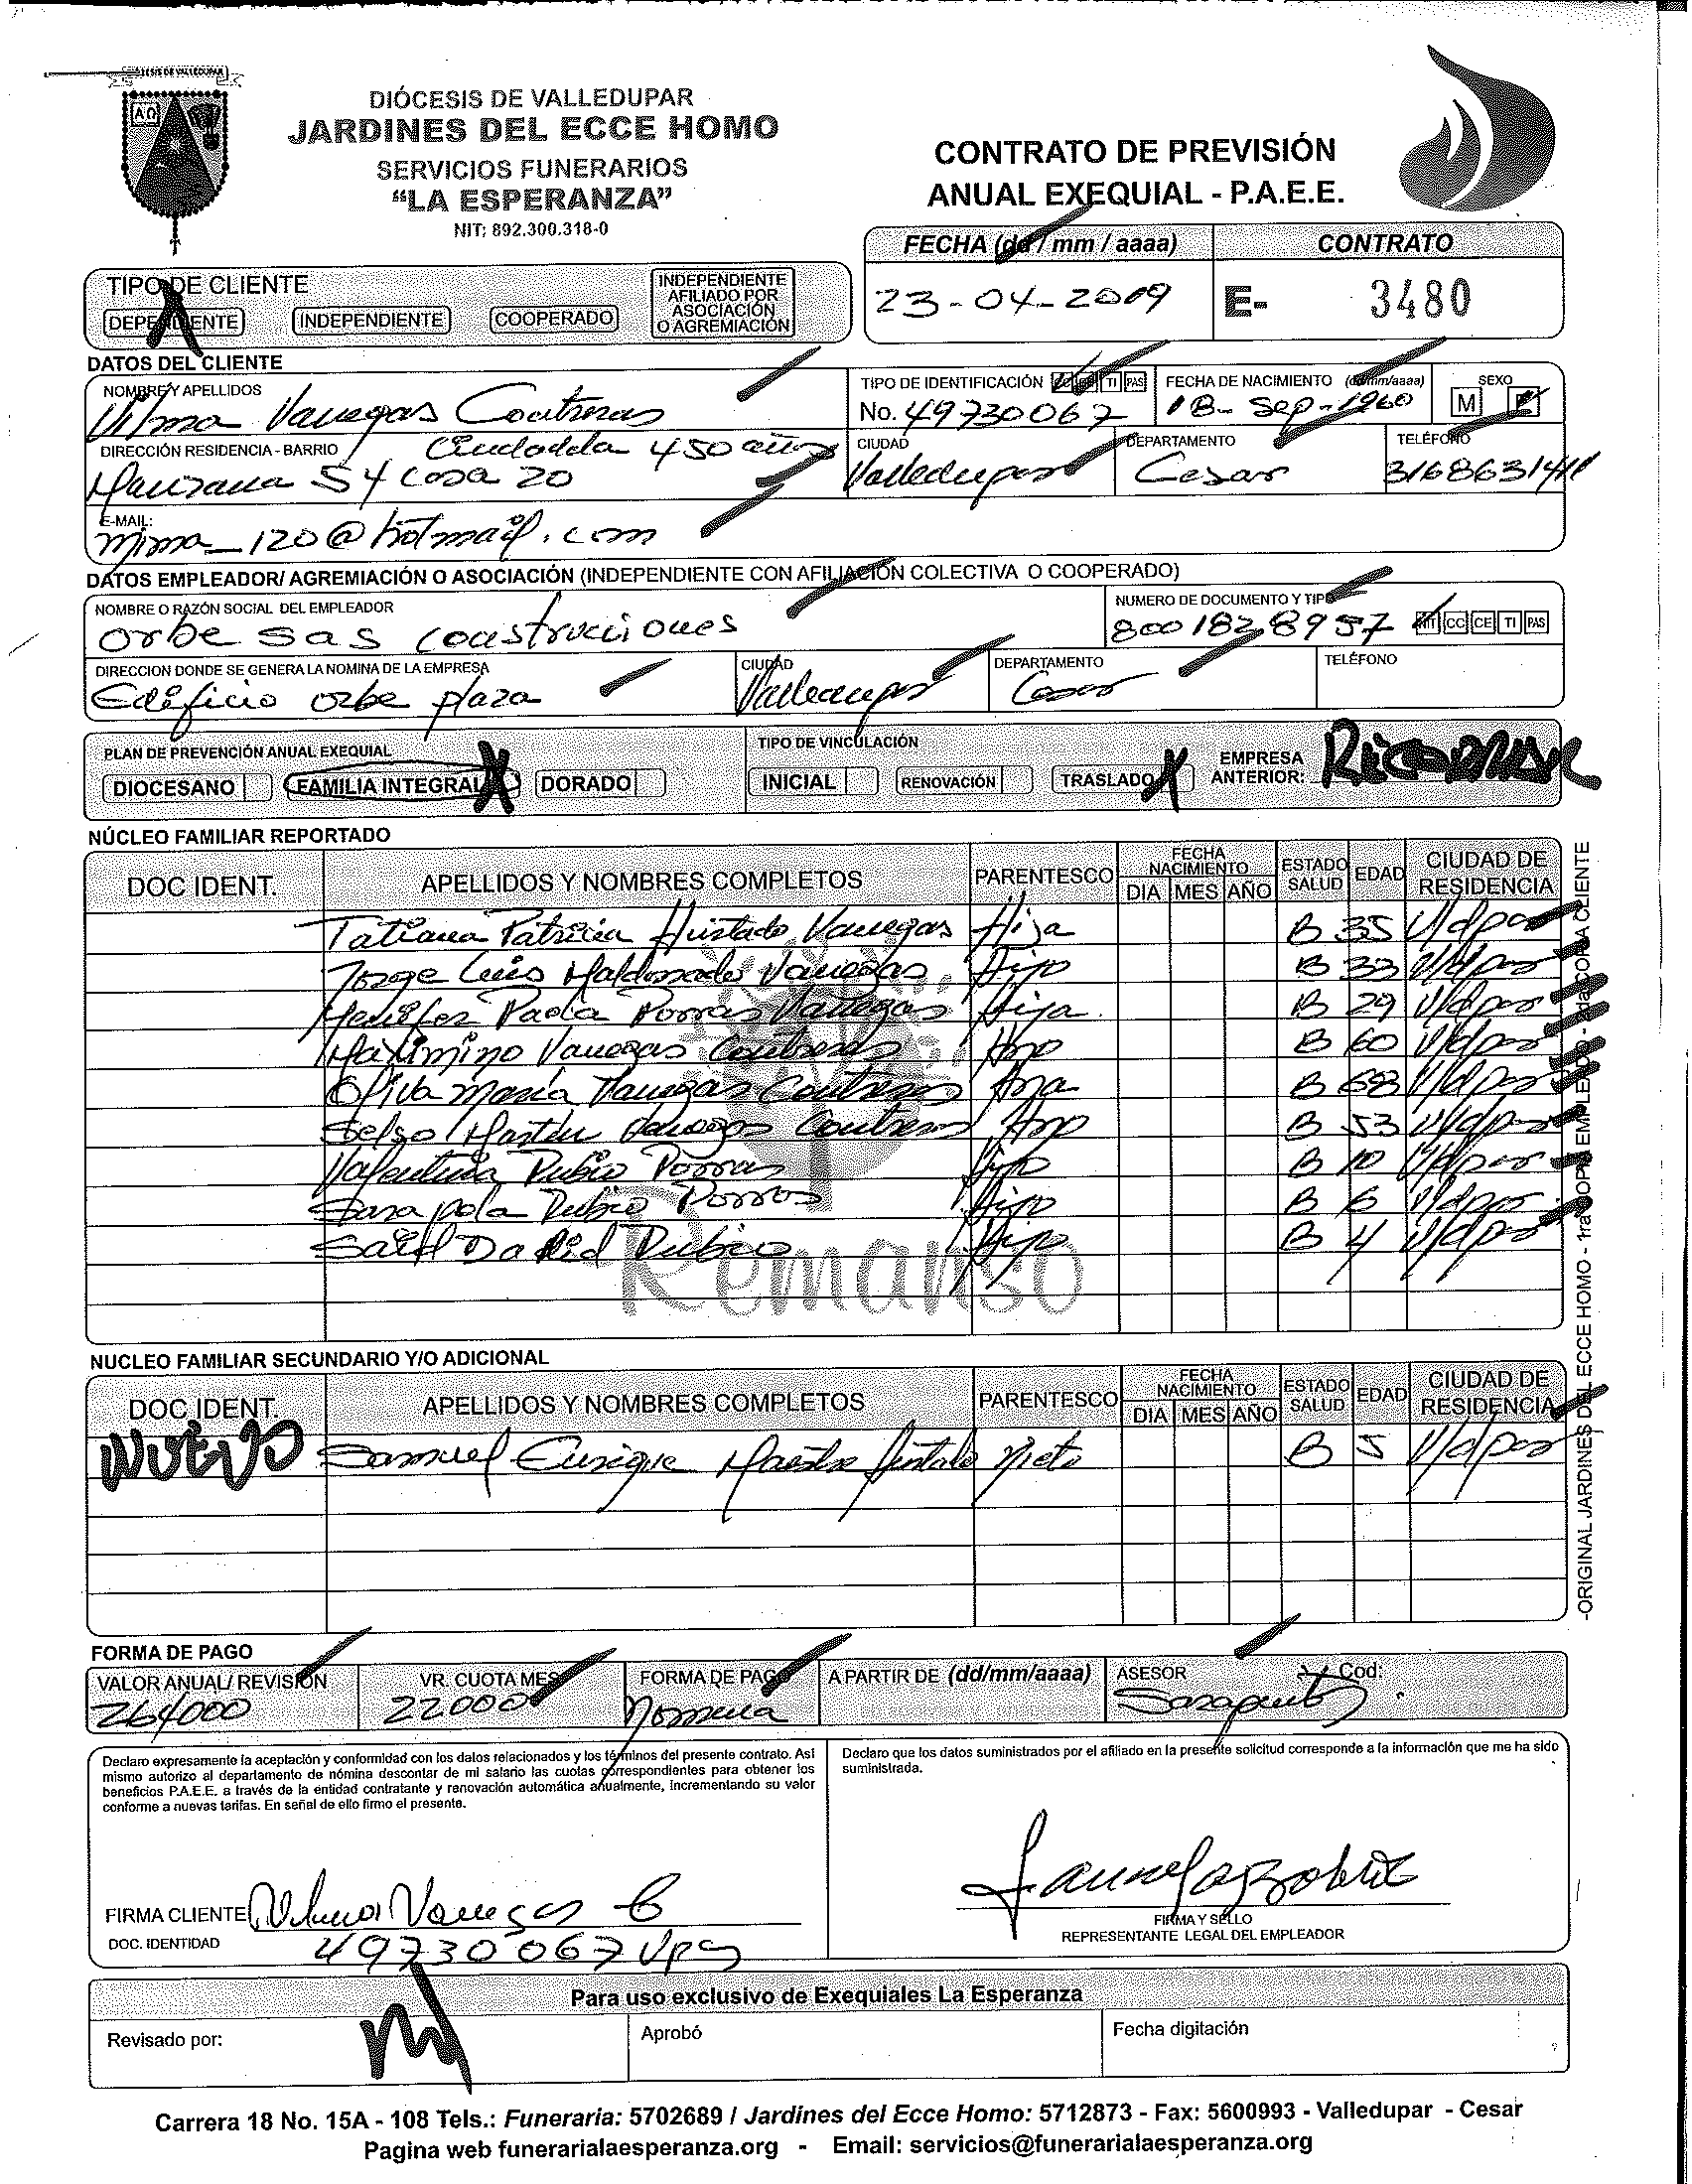 DIÓCESIS DE VALLEDUPAR
JARDINES DEL ECCE HOMO
SERVICIOS FUNERARIOS
“LA ESPERANZA”
NIT: 892.300.318-0
CONTRATO DE PREVISIÓN
ANUAL EXEQUIAL - P.A.E.E.
FECHA (dd / mm / aaaa) CONTRATO
23-04-2009 E- 3480
TIPO DE CLIENTE
DEPENDIENTE INDEPENDIENTE COOPERADO INDEPENDIENTE AFILIADO POR ASOCIACIÓN O AGREMIACIÓN
DATOS DEL CLIENTE
NOMBRE Y APELLIDOS TIPO DE IDENTIFICACIÓN CC CE TI PAS FECHA DE NACIMIENTO (dd/mm/aaaa) SEXO
Vilma Vanegas Contreras No. 49730067 18-Sep-1960 M F
DIRECCIÓN RESIDENCIA - BARRIO Ciudadela 450 años CIUDAD DEPARTAMENTO TELÉFONO
Manzana 54 Casa 20 Valledupar Cesar
E-MAIL:
mima_120@hotmail.com
DATOS EMPLEADOR/ AGREMIACIÓN O ASOCIACIÓN (INDEPENDIENTE CON AFILIACIÓN COLECTIVA O COOPERADO)
NOMBRE O RAZÓN SOCIAL DEL EMPLEADOR NUMERO DE DOCUMENTO Y TIPO
Orbe SAS Construcciones 8001828957 NIT CC CE TI PAS
DIRECCION DONDE SE GENERA LA NOMINA DE LA EMPRESA CIUDAD DEPARTAMENTO TELÉFONO
Edificio Orbe plaza Valledupar Cesar
PLAN DE PREVENCIÓN ANUAL EXEQUIAL TIPO DE VINCULACIÓN
DIOCESANO FAMILIA INTEGRAL DORADO INICIAL RENOVACIÓN TRASLADO EMPRESA ANTERIOR:
NÚCLEO FAMILIAR REPORTADO
DOC IDENT. APELLIDOS Y NOMBRES COMPLETOS PARENTESCO FECHA NACIMIENTO DIA MES AÑO ESTADO SALUD EDAD CIUDAD DE RESIDENCIA
Tatiana Patricia Hurtado Vanegas Hija B 35 V/dpar
Jorge Luis Maldonado Vanegas Hijo B 33 V/dpar
Yenifer Paola Porras Vanegas Hija B 29 V/dpar
Maximino Vanegas Contreras Hno B 60 V/dpar
Oliva María Vanegas Contreras Hna B 68 V/dpar
Selso Martin Vanegas Contreras Hno B 53 V/dpar
Valentina Rubio Porras Hijo B 10 V/dpar
Sara pola Rubio Porras Hijo B 6 V/dpar
Said David Rubio Hijo B 4 V/dpar
Remanso
NUCLEO FAMILIAR SECUNDARIO Y/O ADICIONAL
DOC IDENT. APELLIDOS Y NOMBRES COMPLETOS PARENTESCO FECHA NACIMIENTO DIA MES AÑO ESTADO SALUD EDAD CIUDAD DE RESIDENCIA
NUEVO Samuel Enrique Maestre Hurtado Nieto B 5 V/dpar
-ORIGINAL JARDINES DEL ECCE HOMO - 1ra COPIA EMPLEADO - 2da COPIA CLIENTE
FORMA DE PAGO
VALOR ANUAL/ REVISIÓN VR. CUOTA MES FORMA DE PAGO A PARTIR DE (dd/mm/aaaa) ASESOR Cod:
264000 22000 Nomina
Declaro expresamente la aceptación y conformidad con los datos relacionados y los términos del presente contrato. Así
mismo autorizo al departamento de nómina descontar de mi salario las cuotas correspondientes para obtener los
beneficios P.A.E.E. a través de la entidad contratante y renovación automática anualmente, incrementando su valor
conforme a nuevas tarifas. En señal de ello firmo el presente.
Declaro que los datos suministrados por el afiliado en la presente solicitud corresponde a la información que me ha sido
suministrada.
FIRMA CLIENTE Vilma Vanegas C
DOC. IDENTIDAD 49730067 Vpar
FIRMA Y SELLO
REPRESENTANTE LEGAL DEL EMPLEADOR
Para uso exclusivo de Exequiales La Esperanza
Revisado por: Aprobó Fecha digitación
Carrera 18 No. 15A - 108 Tels.: Funeraria: 5702689 / Jardines del Ecce Homo: 5712873 - Fax: 5600993 - Valledupar - Cesar
Pagina web funerarialaesperanza.org - Email: servicios@funerarialaesperanza.org